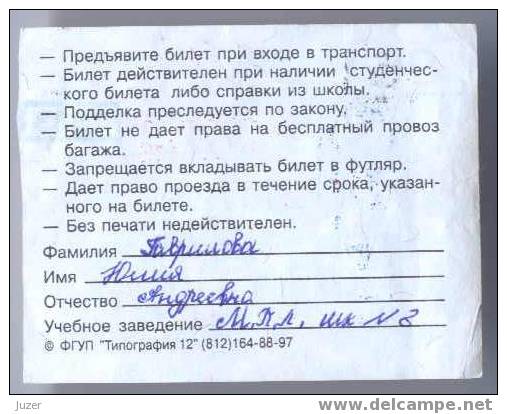 — Предъявите билет при входе в транспорт.
— Билет действителен при наличии студенчес-
кого билета либо справки из школы.
— Подделка преследуется по закону.
— Билет не дает права на бесплатный провоз
багажа.
— Запрещается вкладывать билет в футляр.
— Дает право проезда в течение срока, указан-
ного на билете.
— Без печати недействителен.
Фамилия Гаврилова
Имя Юлия
Отчество Андреевна
Учебное заведение М.П.Л. шк N 3
© ФГУП "Типография 12" (812)164-88-97
Juzer
www.delcampe.net